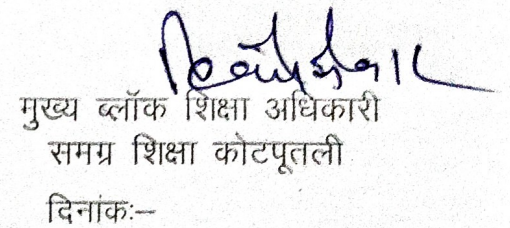 मुख्य ब्लॉक शिक्षा अधिकारी
समग्र शिक्षा कोटपूतली
दिनांकः–